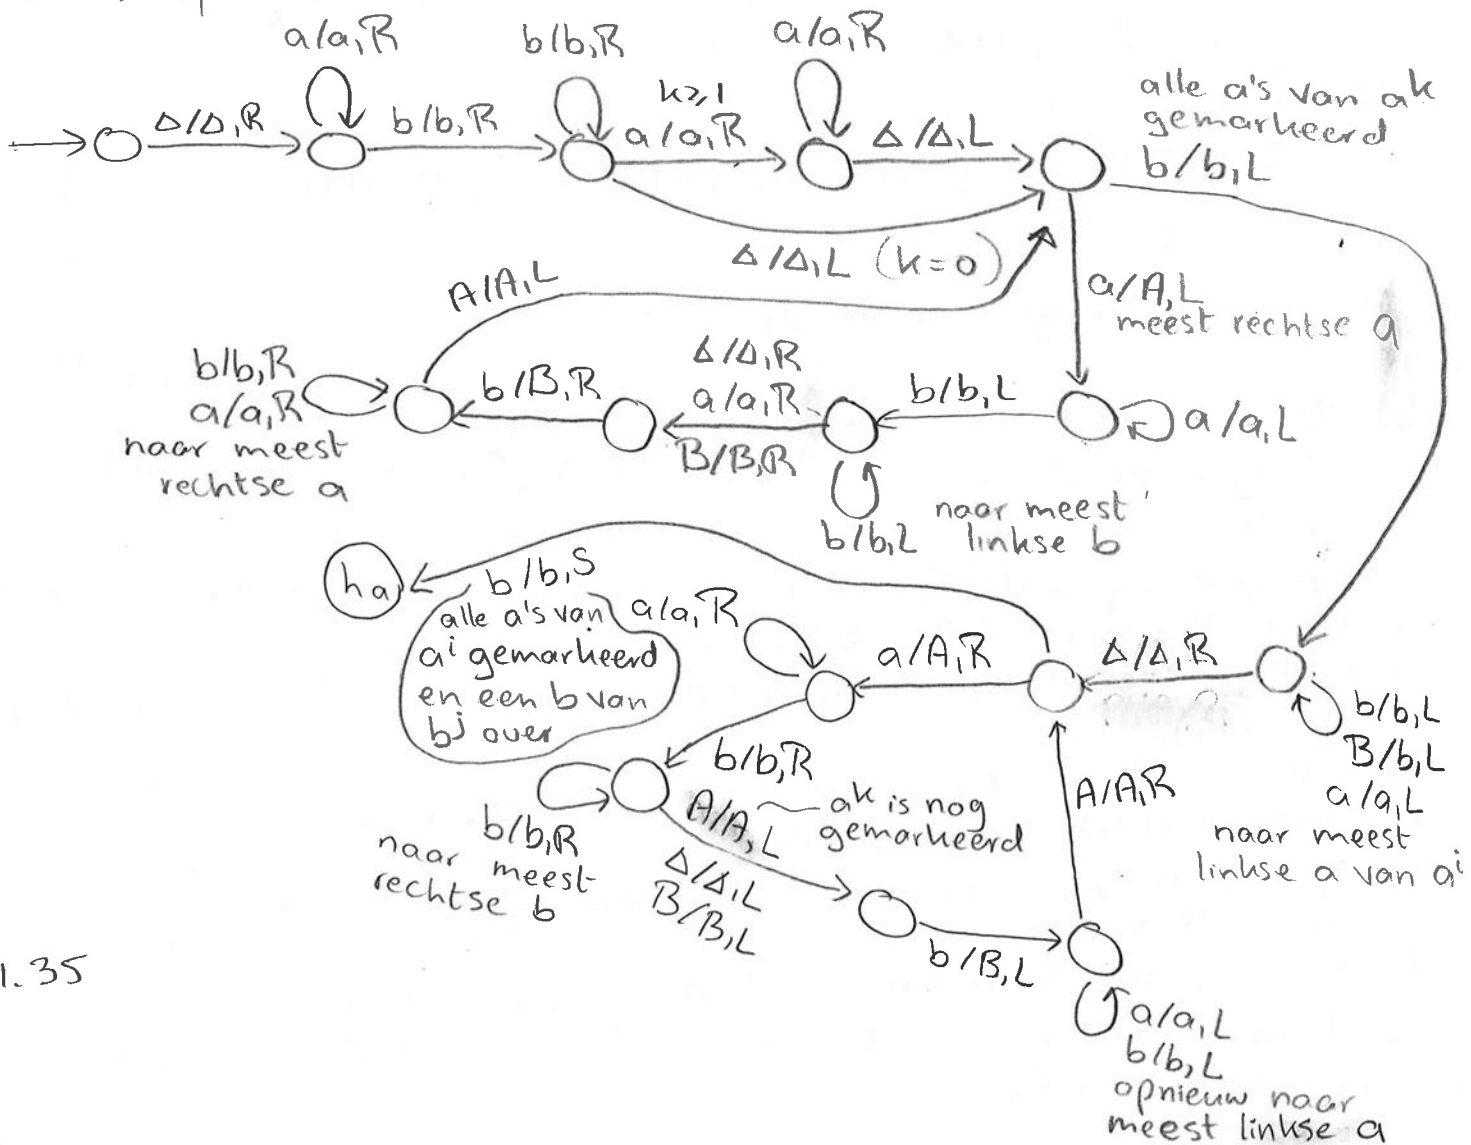 a/a,R
b/b,R
a/a,R
Δ/Δ,R
b/b,R
k≥1
a/a,R
Δ/Δ,L
alle a's van a^k
gemarkeerd
b/b,L
Δ/Δ,L (k=0)
A/A,L
a/A,L
meest rechtse a
b/b,R
a/a,R
naar meest
rechtse a
b/B,R
Δ/Δ,R
a/a,R
B/B,R
b/b,L
a/a,L
b/b,L
naar meest
linkse b
ha
b/b,S
alle a's van
a^i gemarkeerd
en een b van
b^j over
a/a,R
a/A,R
Δ/Δ,R
b/b,L
B/b,L
a/a,L
naar meest
linkse a van a^i
b/b,R
b/b,R
naar meest
rechtse b
A/A,L
a^k is nog
gemarkeerd
Δ/Δ,L
B/B,L
A/A,R
b/B,L
a/a,L
b/b,L
opnieuw naar
meest linkse a
1.35